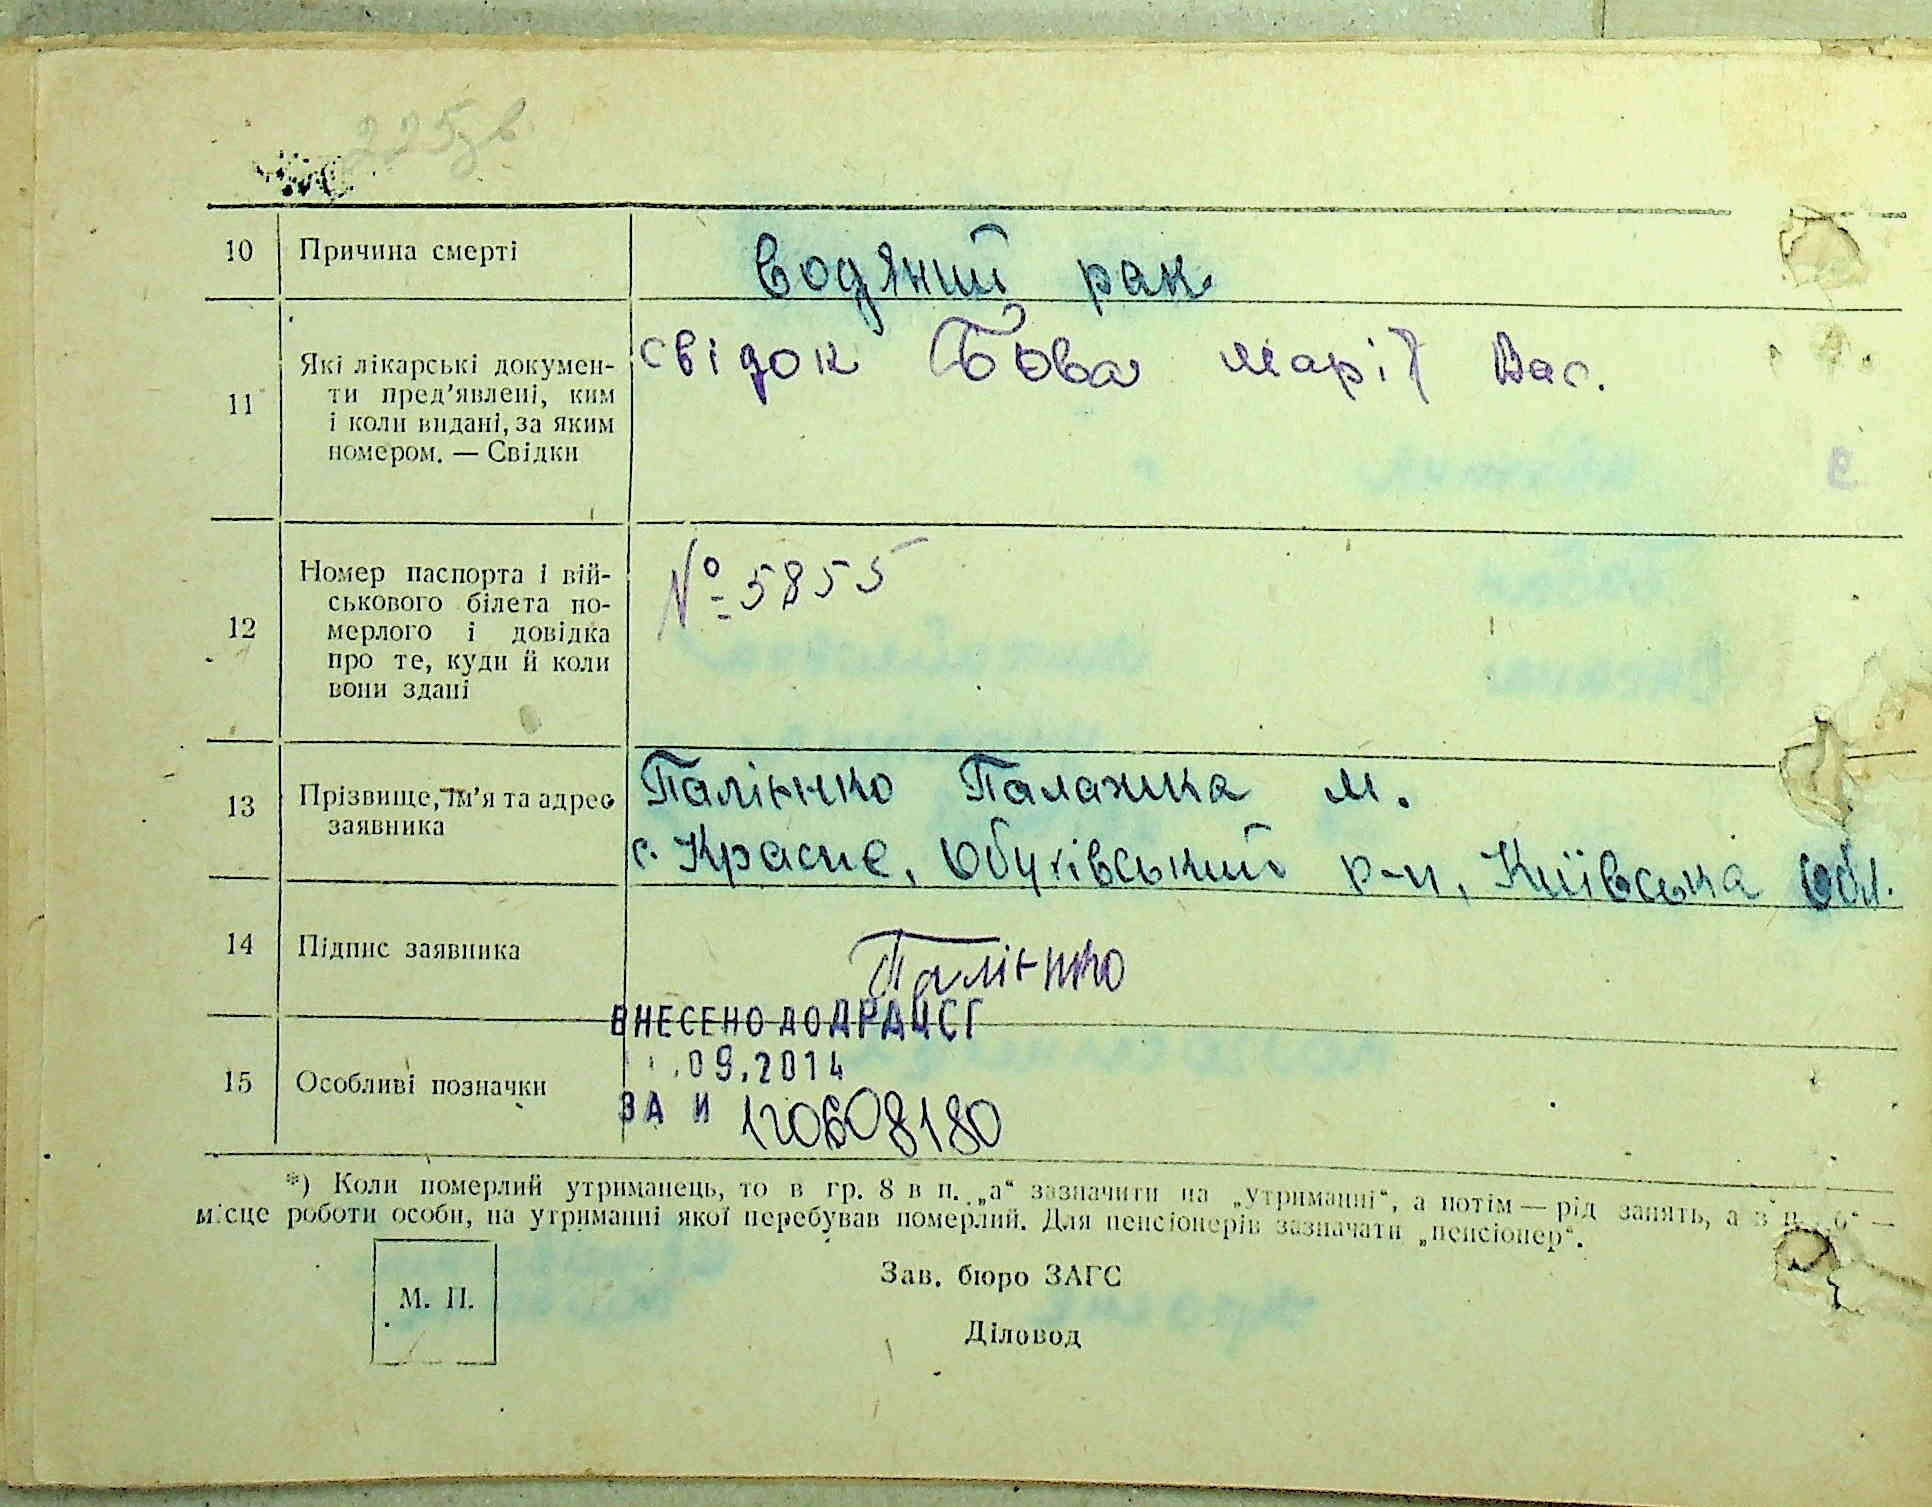 225зв
10 Причина смерті Водяний рак
11 Які лікарські докумен-
ти пред'явлені, ким
і коли видані, за яким
номером. — Свідки
свідок Бова Марія Вас.
12 Номер паспорта і вій-
ськового білета по-
мерлого і довідка
про те, куди й коли
вони здані
№ 5855
13 Прізвище, ім'я та адрес
заявника
Палієнко Палажка М.
с. Красне, Обухівський р-н, Київська обл.
14 Підпис заявника Палієнко
ВНЕСЕНО ДО ДРАЦСГ
.09.2014
15 Особливі позначки
ЗА И 120608180
*) Коли померлий утриманець, то в гр. 8 в п. „а“ зазначити на „утриманні“, а потім — рід занять, а в п. „б“ —
місце роботи особи, на утриманні якої перебував померлий. Для пенсіонерів зазначати „пенсіонер“.
М. П.
Зав. бюро ЗАГС
Діловод